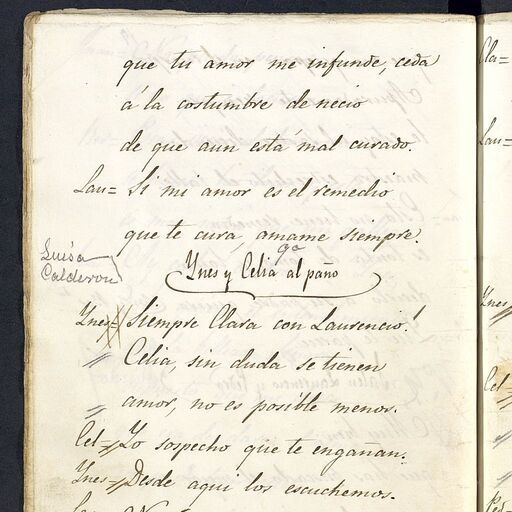 que tu amor me infunde, ceda
á la costumbre de necio
de que aun está mal curado.
Lau= Si mi amor es el remedio
que te cura, amame siempre.
Luisa
Calderon
Ynes y Celia al paño
Ynes= Siempre Clara con Laurencio!
Celia, sin duda se tienen
amor, no es posible menos.
Cel= Yo sospecho que te engañan.
Ynes= Desde aqui los escuchemos.
Cla=
Lau=
Ynes
Cel=
Ped=